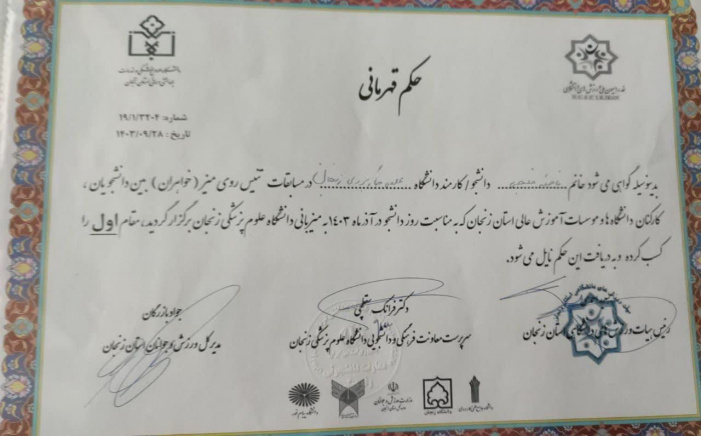 حکم قهرمانی
شماره: ۱۹/۱/۳۲۰۴
تاریخ: ۱۴۰۳/۰۹/۲۸
بدینوسیله گواهی می شود خانم دانشجو/کارمند دانشگاه در مسابقات تنیس روی میز (خواهران) بین دانشجویان ،
کارکنان دانشگاه ها و موسسات آموزش عالی استان زنجان که به مناسبت روز دانشجو در آذر ماه ۱۴۰۳ به میزبانی دانشگاه علوم پزشکی زنجان برگزار گردید، مقام اول را
کسب کرده و به دریافت این حکم نایل می شود.
رئیس هیات ورزش های دانشگاهی استان زنجان
دکتر فرانک
سرپرست معاونت فرهنگی و دانشجویی دانشگاه علوم پزشکی زنجان
جواد بازرگان
مدیر کل ورزش و جوانان استان زنجان